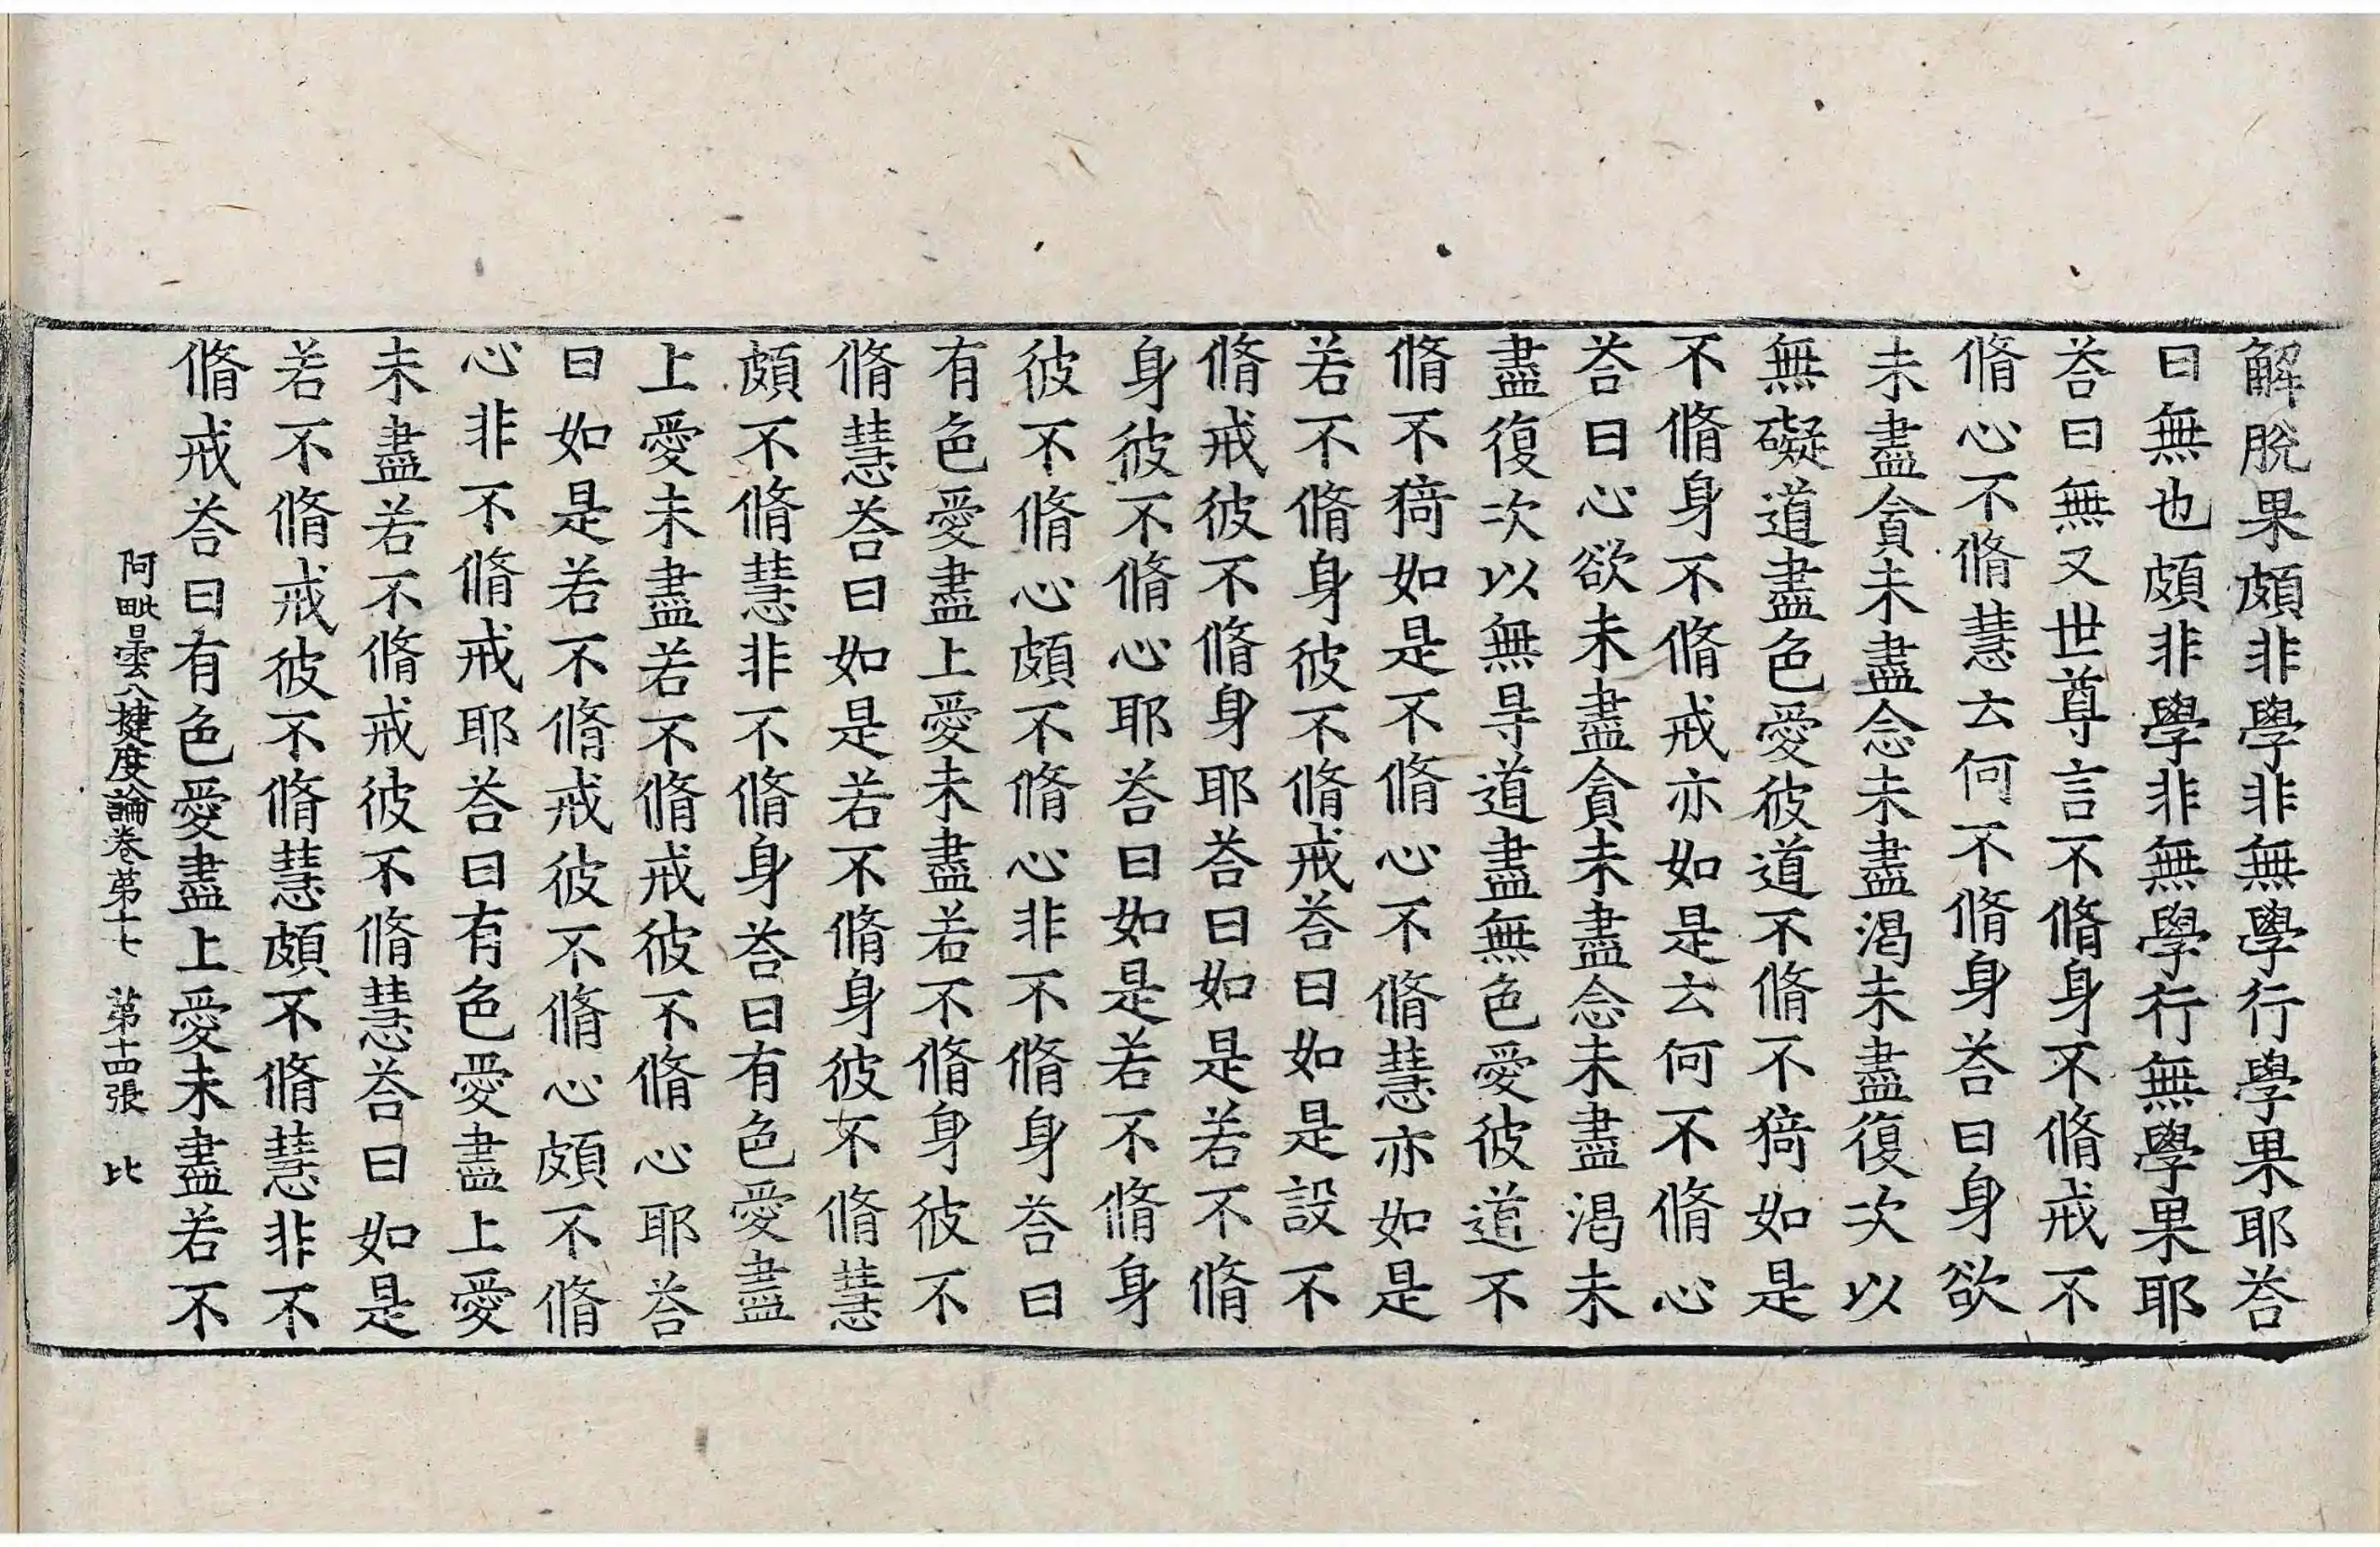 解脫果頗非學非無學行學果耶荅
曰無也頗非學非無學行無學果耶
荅曰無又世尊言不脩身不脩戒不
脩心不脩慧云何不脩身荅曰身欲
未盡貪未盡念未盡渴未盡復次以
無礙道盡色愛彼道不脩不猗如是
不脩身不脩戒亦如是云何不脩心
荅曰心欲未盡貪未盡念未盡渴未
盡復次以無㝵道盡無色愛彼道不
脩不猗如是不脩心不脩慧亦如是
若不脩身彼不脩戒荅曰如是設不
脩戒彼不脩身耶荅曰如是若不脩
身彼不脩心耶荅曰如是若不脩身
彼不脩心頗不脩心非不脩身荅曰
有色愛盡上愛未盡若不脩身彼不
脩慧荅曰如是若不脩身彼不脩慧
頗不脩慧非不脩身荅曰有色愛盡
上愛未盡若不脩戒彼不脩心耶荅
曰如是若不脩戒彼不脩心頗不脩
心非不脩戒耶荅曰有色愛盡上愛
未盡若不脩戒彼不脩慧荅曰如是
若不脩戒彼不脩慧頗不脩慧非不
脩戒荅曰有色愛盡上愛未盡若不
阿毗曇八揵度論卷第十七 第十四張 比